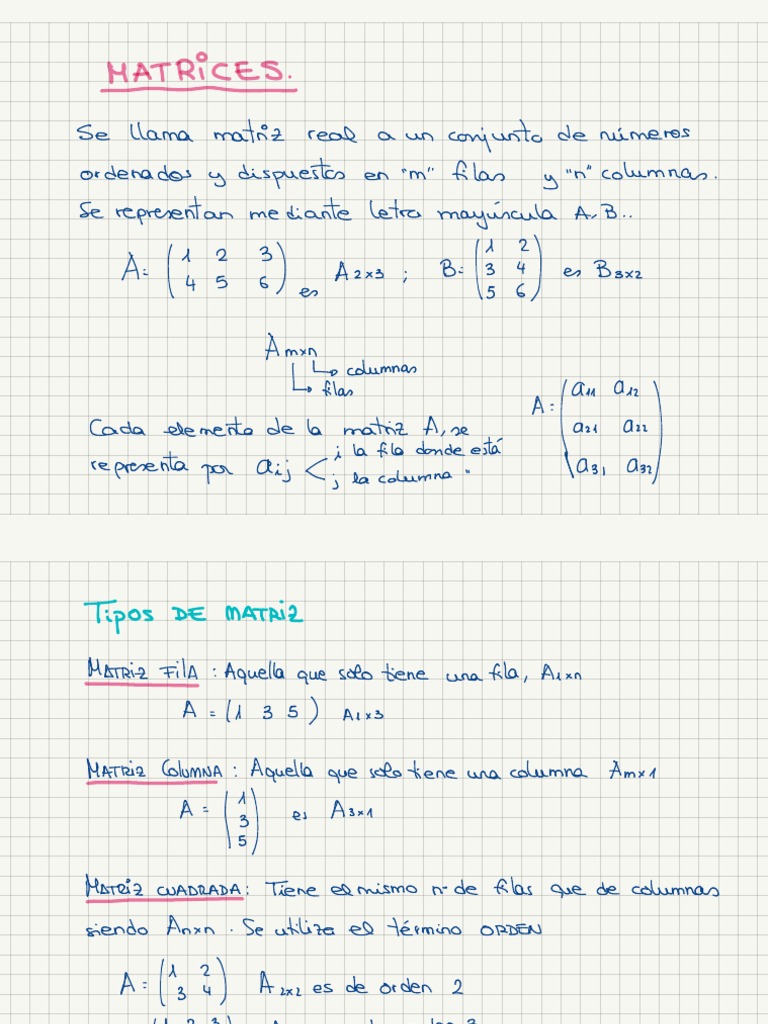 MATRICES.
Se llama matriz real a un conjunto de números
ordenados y dispuestos en "m" filas y "n" columnas.
Se representan mediante letra mayúscula A, B..
A = ( 1 2 3 ; 4 5 6 ) es A2x3 ; B = ( 1 2 ; 3 4 ; 5 6 ) es B3x2
Amxn
columnas
filas
Cada elemento de la matriz A, se
representa por aij < i la fila donde está
j la columna "
A = ( a11 a12 ; a21 a22 ; a31 a32 )
Tipos DE MATRIZ
MATRIZ FILA : Aquella que solo tiene una fila, A1xn
A = ( 1 3 5 ) A1x3
MATRIZ COLUMNA : Aquella que solo tiene una columna Amx1
A = ( 1 ; 3 ; 5 ) es A3x1
MATRIZ CUADRADA : Tiene el mismo nº de filas que de columnas
siendo Anxn . Se utiliza el término ORDEN
A = ( 1 2 ; 3 4 ) A2x2 es de orden 2